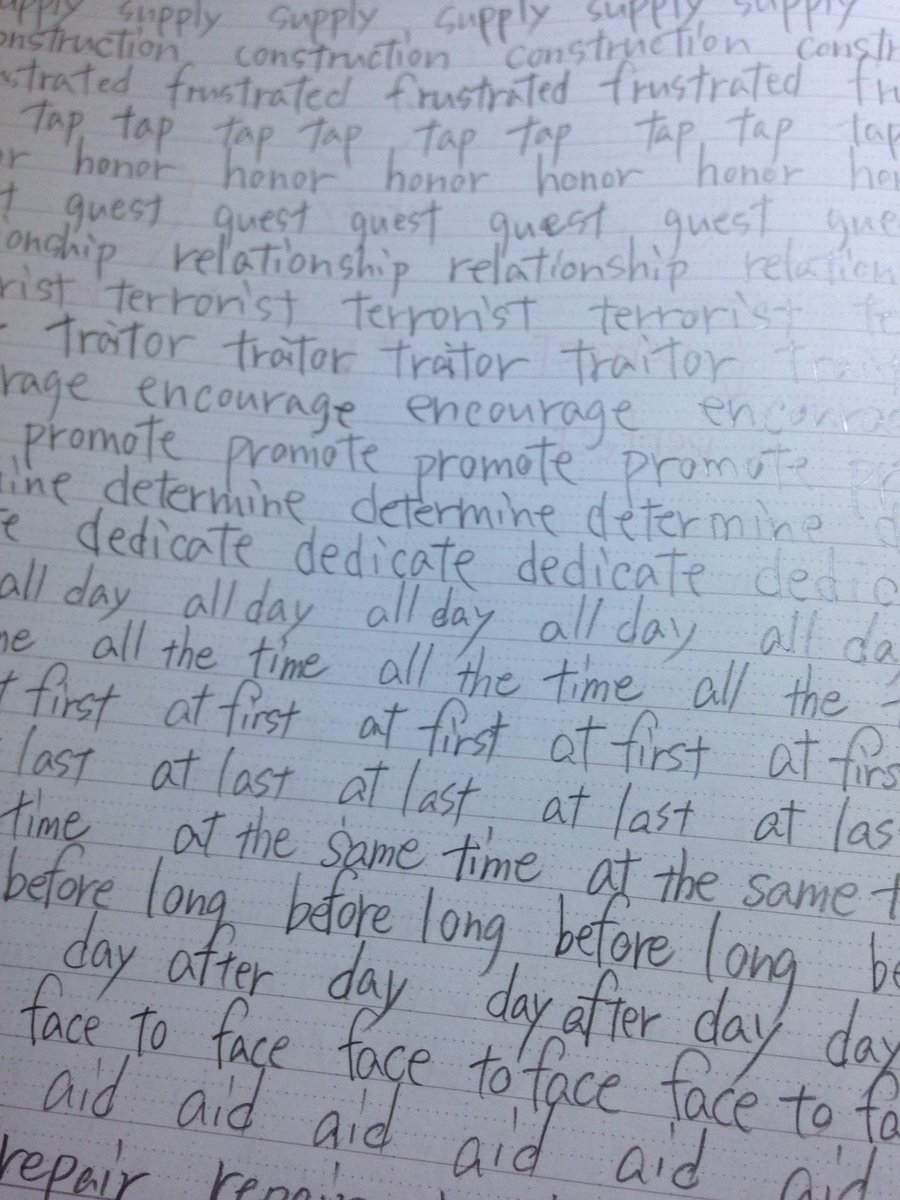 upply supply supply supply supply supply
onstruction construction construction constr
strated frustrated frustrated frustrated fru
Tap tap tap tap tap tap tap tap tap
or honor honor honor honor honor hon
t guest guest guest guest guest gue
onship relationship relationship relation
rist terrorist terrorist terrorist te
traitor traitor traitor traitor trait
rage encourage encourage encourag
promote promote promote promote pr
ine determine determine determine d
e dedicate dedicate dedicate dedic
all day all day all day all day all da
me all the time all the time all the t
t first at first at first at first at firs
last at last at last at last at las
time at the same time at the same t
before long before long before long be
day after day day after day day
face to face face to face face to fa
aid aid aid aid aid aid
repair repair